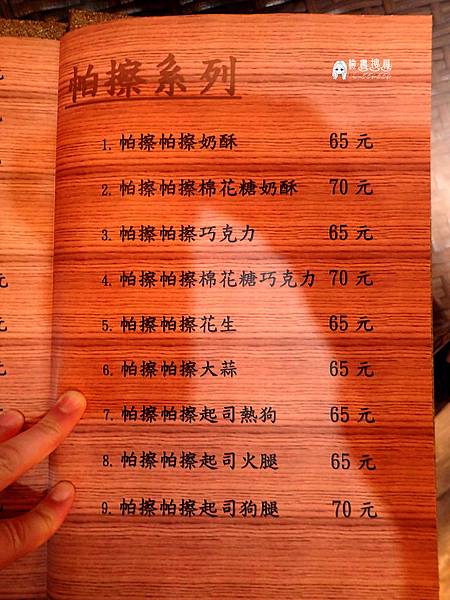 帕擦系列
1. 帕擦帕擦奶酥 65 元
2. 帕擦帕擦棉花糖奶酥 70 元
3. 帕擦帕擦巧克力 65 元
4. 帕擦帕擦棉花糖巧克力 70 元
5. 帕擦帕擦花生 65 元
6. 帕擦帕擦大蒜 65 元
7. 帕擦帕擦起司熱狗 65 元
8. 帕擦帕擦起司火腿 65 元
9. 帕擦帕擦起司狗腿 70 元